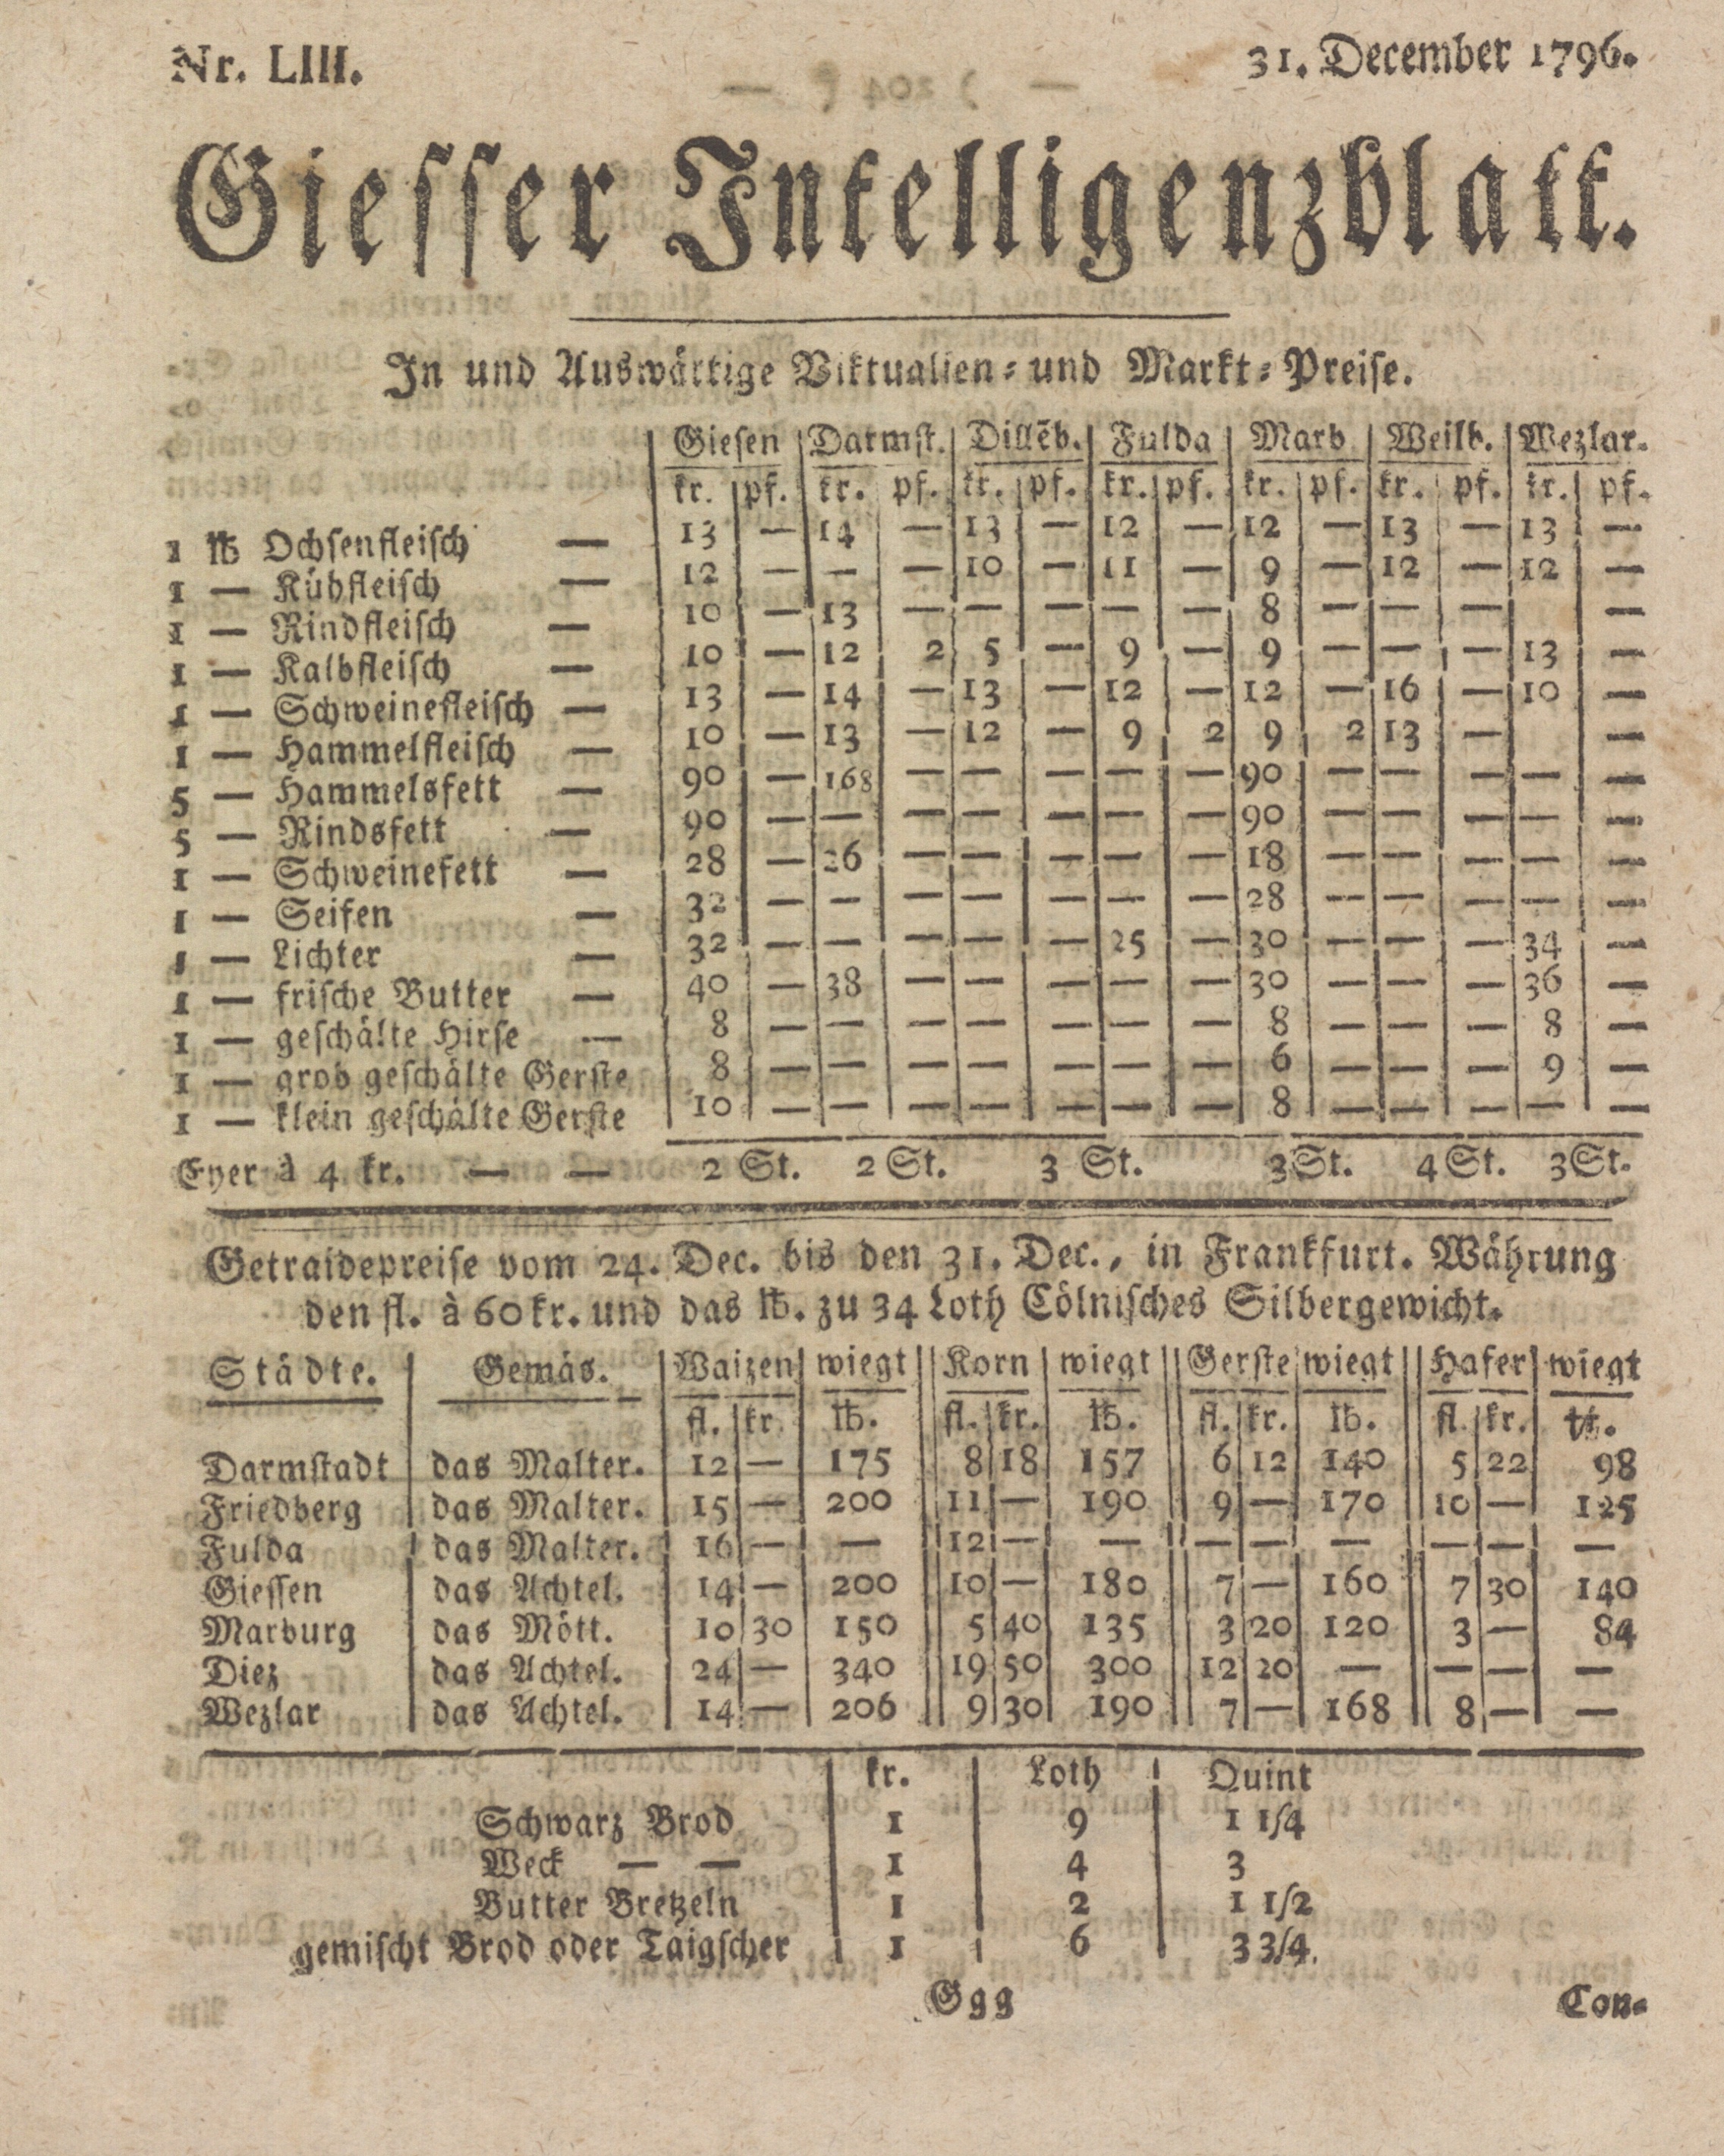 Nr. LIII. 31. December 1796.
Giesser Intelligenzblatt.
In und Auswärtige Viktualien- und Markt-Preise.
Giesen | Darmst. | Dillēb. | Fulda | Marb | Weilb. | Wezlar.
kr. | pf. | kr. | pf. | kr. | pf. | kr. | pf. | kr. | pf. | kr. | pf. | kr. | pf.
1 ℔ Ochsenfleisch — 13 | — | 14 | — | 13 | — | 12 | — | 12 | — | 13 | — | 13 | —
1 — Kühfleisch — 12 | — | — | — | 10 | — | 11 | — | 9 | — | 12 | — | 12 | —
1 — Rindfleisch — 10 | — | 13 | — | — | — | — | — | 8 | — | — | — | | —
1 — Kalbfleisch — 10 | — | 12 | 2 | 5 | — | 9 | — | 9 | — | — | — | 13 | —
1 — Schweinefleisch — 13 | — | 14 | — | 13 | — | 12 | — | 12 | — | 16 | — | 10 | —
1 — Hammelfleisch — 10 | — | 13 | — | 12 | — | 9 | 2 | 9 | 2 | 13 | — | | —
5 — Hammelsfett — 90 | — | 168 | — | — | — | — | — | 90 | — | — | — | — | —
5 — Rindsfett — 90 | — | — | — | — | — | — | — | 90 | — | — | — | — | —
1 — Schweinefett — 28 | — | 26 | — | — | — | — | — | 18 | — | — | — | — | —
1 — Seifen — 32 | — | — | — | — | — | — | — | 28 | — | — | — | — | —
1 — Lichter — 32 | — | — | — | — | — | 25 | — | 30 | — | — | — | 34 | —
1 — frische Butter — 40 | — | 38 | — | — | — | — | — | 30 | — | — | — | 36 | —
1 — geschälte Hirse — 8 | — | — | — | — | — | — | — | 8 | — | — | — | 8 | —
1 — grob geschälte Gerste 8 | — | — | — | — | — | — | — | 6 | — | — | — | 9 | —
1 — klein geschälte Gerste 10 | — | — | — | — | — | — | — | 8 | — | — | — | — | —
Eyer à 4 kr. — — 2 St. 2 St. 3 St. 3 St. 4 St. 3 St.
Getraidepreise vom 24. Dec. bis den 31. Dec., in Frankfurt. Währung
den fl. à 60 kr. und das ℔. zu 34 Loth Cölnisches Silbergewicht.
Städte. | Gemäs. | Waizen | wiegt || Korn | wiegt || Gerste | wiegt || Hafer | wiegt
fl. | kr | ℔. || fl. | kr. | ℔. || fl. | kr. | ℔. || fl. | kr. | ℔.
Darmstadt | das Malter. | 12 | — | 175 || 8 | 18 | 157 || 6 | 12 | 140 || 5 | 22 | 98
Friedberg | das Malter. | 15 | — | 200 || 11 | — | 190 || 9 | — | 170 || 10 | — | 125
Fulda | das Malter. | 16 | — | — || 12 | — | — || — | — | — || — | — | —
Giessen | das Achtel. | 14 | — | 200 || 10 | — | 180 || 7 | — | 160 || 7 | 30 | 140
Marburg | das Mött. | 10 | 30 | 150 || 5 | 40 | 135 || 3 | 20 | 120 || 3 | — | 84
Diez | das Achtel. | 24 | — | 340 || 19 | 50 | 300 || 12 | 20 | — || — | — | —
Wezlar | das Achtel. | 14 | — | 206 || 9 | 30 | 190 || 7 | — | 168 || 8 | — | —
kr. | Loth | Quint
Schwarz Brod | 1 | 9 | 1 1/4
Weck — — | 1 | 4 | 3
Butter Bretzeln | 1 | 2 | 1 1/2
gemischt Brod oder Taigscher | 1 | 6 | 3 3/4.
Ggg Con-